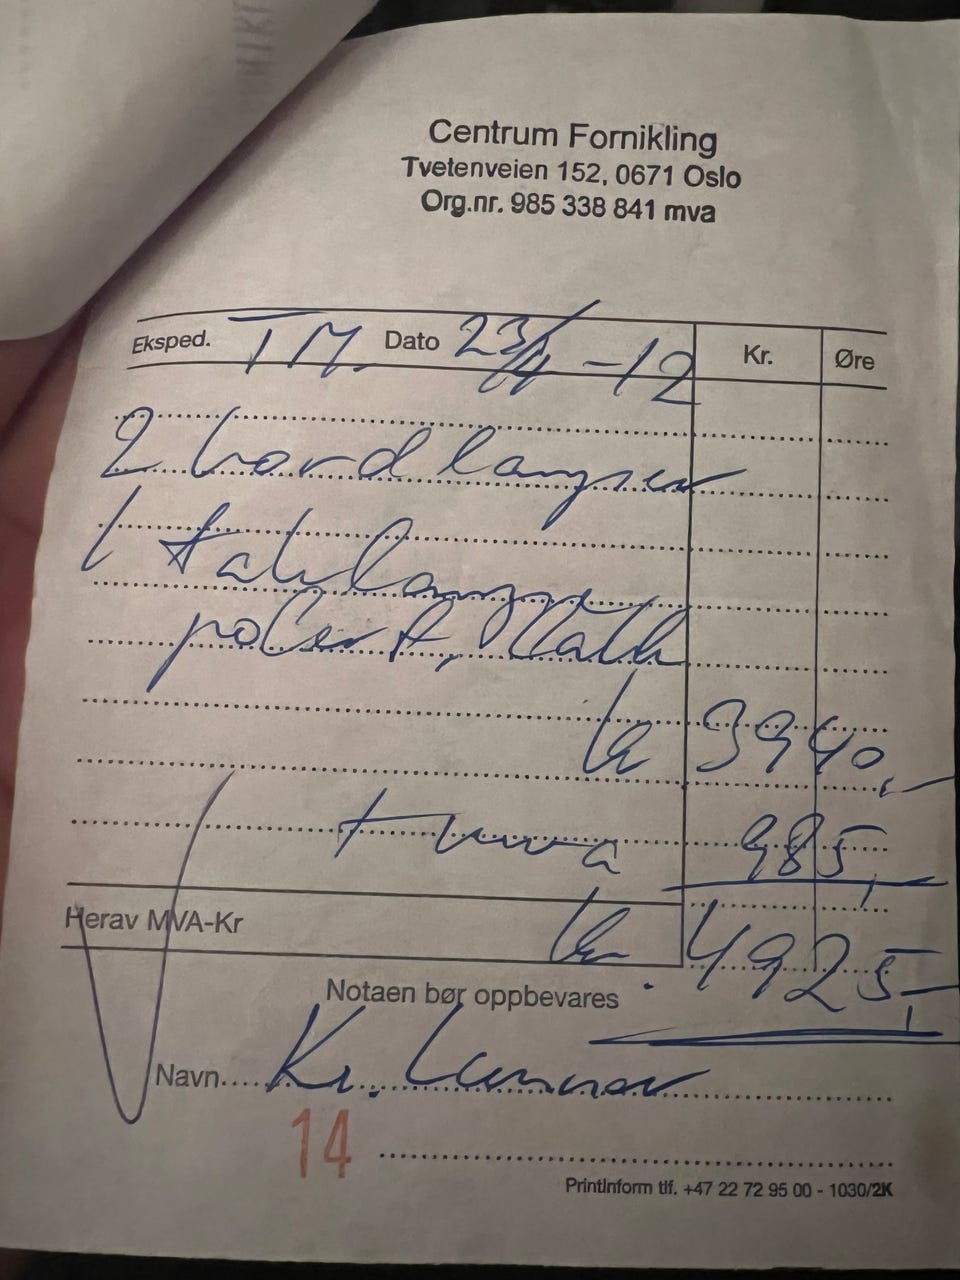 Centrum Fornikling
Tvetenveien 152, 0671 Oslo
Org.nr. 985 338 841 mva
Eksped. TM. Dato 23/4 -12 Kr. Øre
2 bordlamper
1 taklampe
polert,
kr 3940,-
+ mva 985,-
Herav MVA-Kr kr. 4925,-
Notaen bør oppbevares
Navn.... Kr.
14
PrintInform tlf. +47 22 72 95 00 - 1030/2K